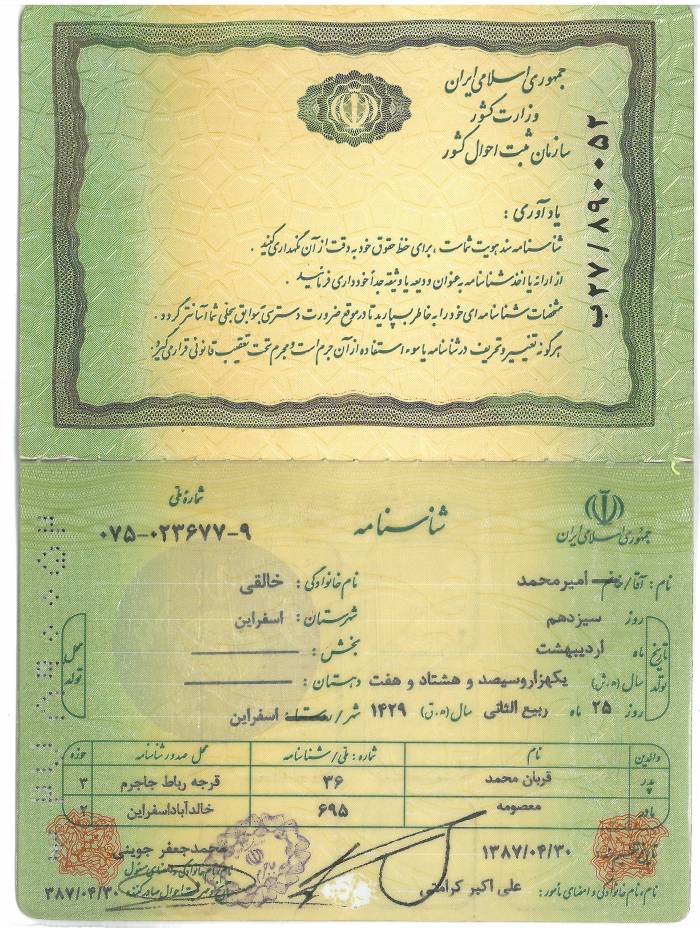 جمهوری اسلامی ایران
وزارت کشور
سازمان ثبت احوال کشور
ب۲۷/۸۹۰۰۵۲
یادآوری :
شناسنامه سند هویت شماست ، برای حفظ حقوق خود به دقت از آن نگهداری کنید .
از ارائه یا اخذ شناسنامه به عنوان ودیعه یا وثیقه جداً خودداری فرمائید .
مشخصات شناسنامه ای خود را به خاطر بسپارید تا در موقع ضرورت دسترسی به سوابق سجلی شما آسانتر گردد .
هرگونه تغییر و تحریف در شناسنامه یا سوء استفاده از آن جرم است و مجرم تحت تعقیب قانونی قرار می گیرد .
جمهوری اسلامی ایران
شناسنامه
شماره ملی
۰۷۵-۰۲۳۶۷۷-۹
نام : آقا/خانم امیرمحمد نام خانوادگی : خالقی
تاریخ تولد روز سیزدهم شهرستان : اسفراین محل تولد
ماه اردیبهشت بخش :
سال (ه.ش) یکهزاروسیصد و هشتاد و هفت دهستان :
روز ۲۵ ماه ربیع الثانی سال (ه.ق) ۱۴۲۹ شهر/روستا : اسفراین
والدین نام شماره : ملی/شناسنامه محل صدور شناسنامه حوزه
پدر قربان محمد ۳۶ قرجه رباط جاجرم ۳
مادر معصومه ۶۹۵ خالدآباداسفراین ۲
تاریخ تنظیم سند ۱۳۸۷/۰۴/۳۰ محمدجعفر جوینی
نام، نام خانوادگی و امضای مأمور : علی اکبر کرامتی ۳۸۷/۰۴/۳۰